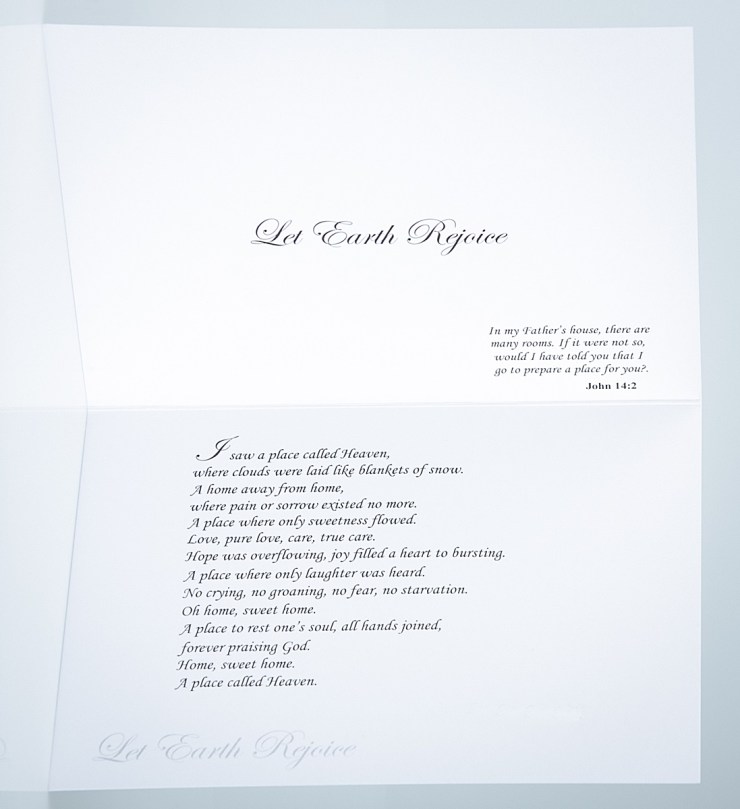 Let Earth Rejoice
In my Father's house, there are
many rooms. If it were not so,
would I have told you that I
go to prepare a place for you?.
John 14:2
I saw a place called Heaven,
where clouds were laid like blankets of snow.
A home away from home,
where pain or sorrow existed no more.
A place where only sweetness flowed.
Love, pure love, care, true care.
Hope was overflowing, joy filled a heart to bursting.
A place where only laughter was heard.
No crying, no groaning, no fear, no starvation.
Oh home, sweet home.
A place to rest one's soul, all hands joined,
forever praising God.
Home, sweet home.
A place called Heaven.
Let Earth Rejoice